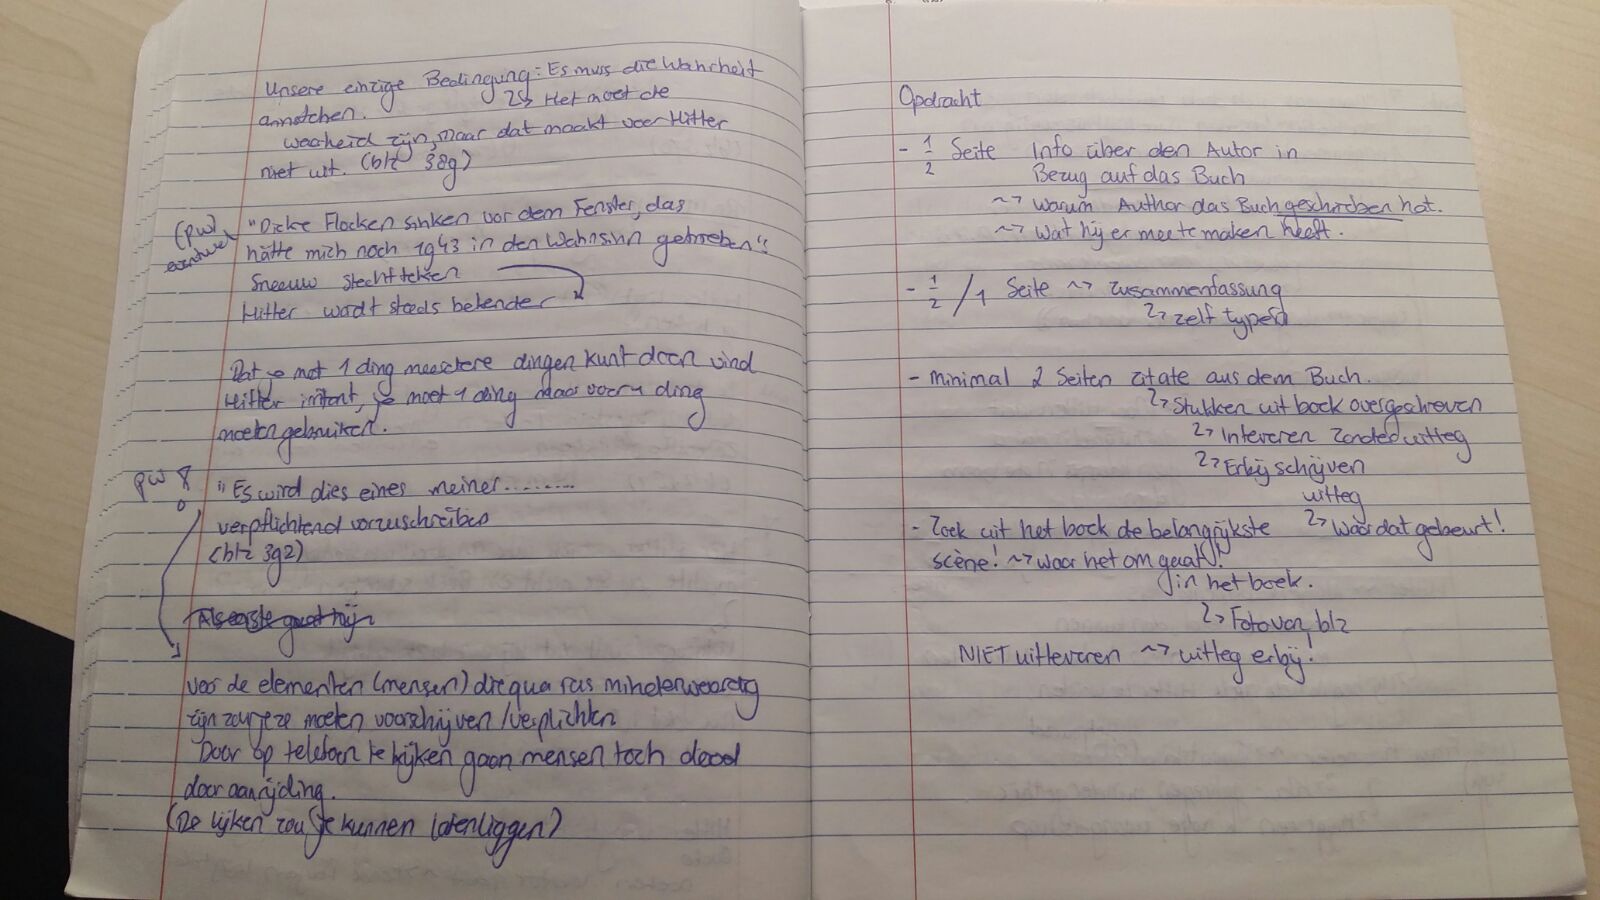 Unsere einzige Bedingung: Es muss die Wahrheit
annotchen. 2> Het moet de
waarheid zijn, maar dat maakt voor Hitler
niet uit. (blz 389)
(pw) "Dicke Flocken sinken vor dem Fenster, das
hätte mich noch 1943 in den Wahnsinn getrieben"
Sneeuw slecht teken
Hitler wordt steeds bekender
Dat je met 1 ding meerdere dingen kunt doen vind
Hitler irritant, je moet 1 ding maar voor 1 ding
moeten gebruiken.
pw 8 "Es wird dies eines meiner.........
verpflichtend vorzuschreiben
(blz 392)
Als eerste gaat hij
voor de elementen (mensen) die qua ras minderwaardig
zijn zou je ze moeten voorschrijven/verplichten
Door op telefoon te kijken gaan mensen toch dood
door aanrijding.
(De lijken zou je kunnen laten liggen)
Opdracht
- 1/2 Seite Info über den Autor in
Bezug auf das Buch
~> Warum Author das Buch geschrieben hat.
~> Wat hij er mee te maken heeft.
- 1/2 / 1 Seite ~> Zusammenfassung
2> zelf typen
- minimal 2 Seiten Zitate aus dem Buch.
2> Stukken uit boek overgeschreven
2> Inleveren zonder uitleg
2> Erbij schrijven
uitleg
2> Waar dat gebeurt!
- Zoek uit het boek de belangrijkste
scène! ~> waar het om gaat!
in het boek.
2> Foto van blz
NIET uitleveren ~> uitleg erbij!